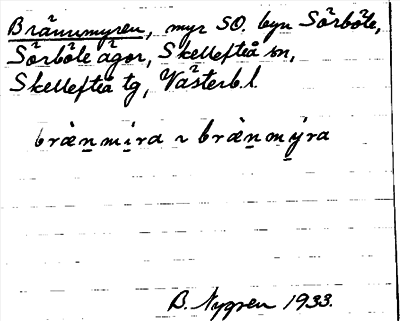 Brännmyren, myr SO. byn Sörböle,
Sörböle ägor, Skellefteå sn,
Skellefteå tg, Västerb. l.
bræ̀n̠mi̠ra ~ bræ̀n̠mý̠ra
B. Nygren 1933.